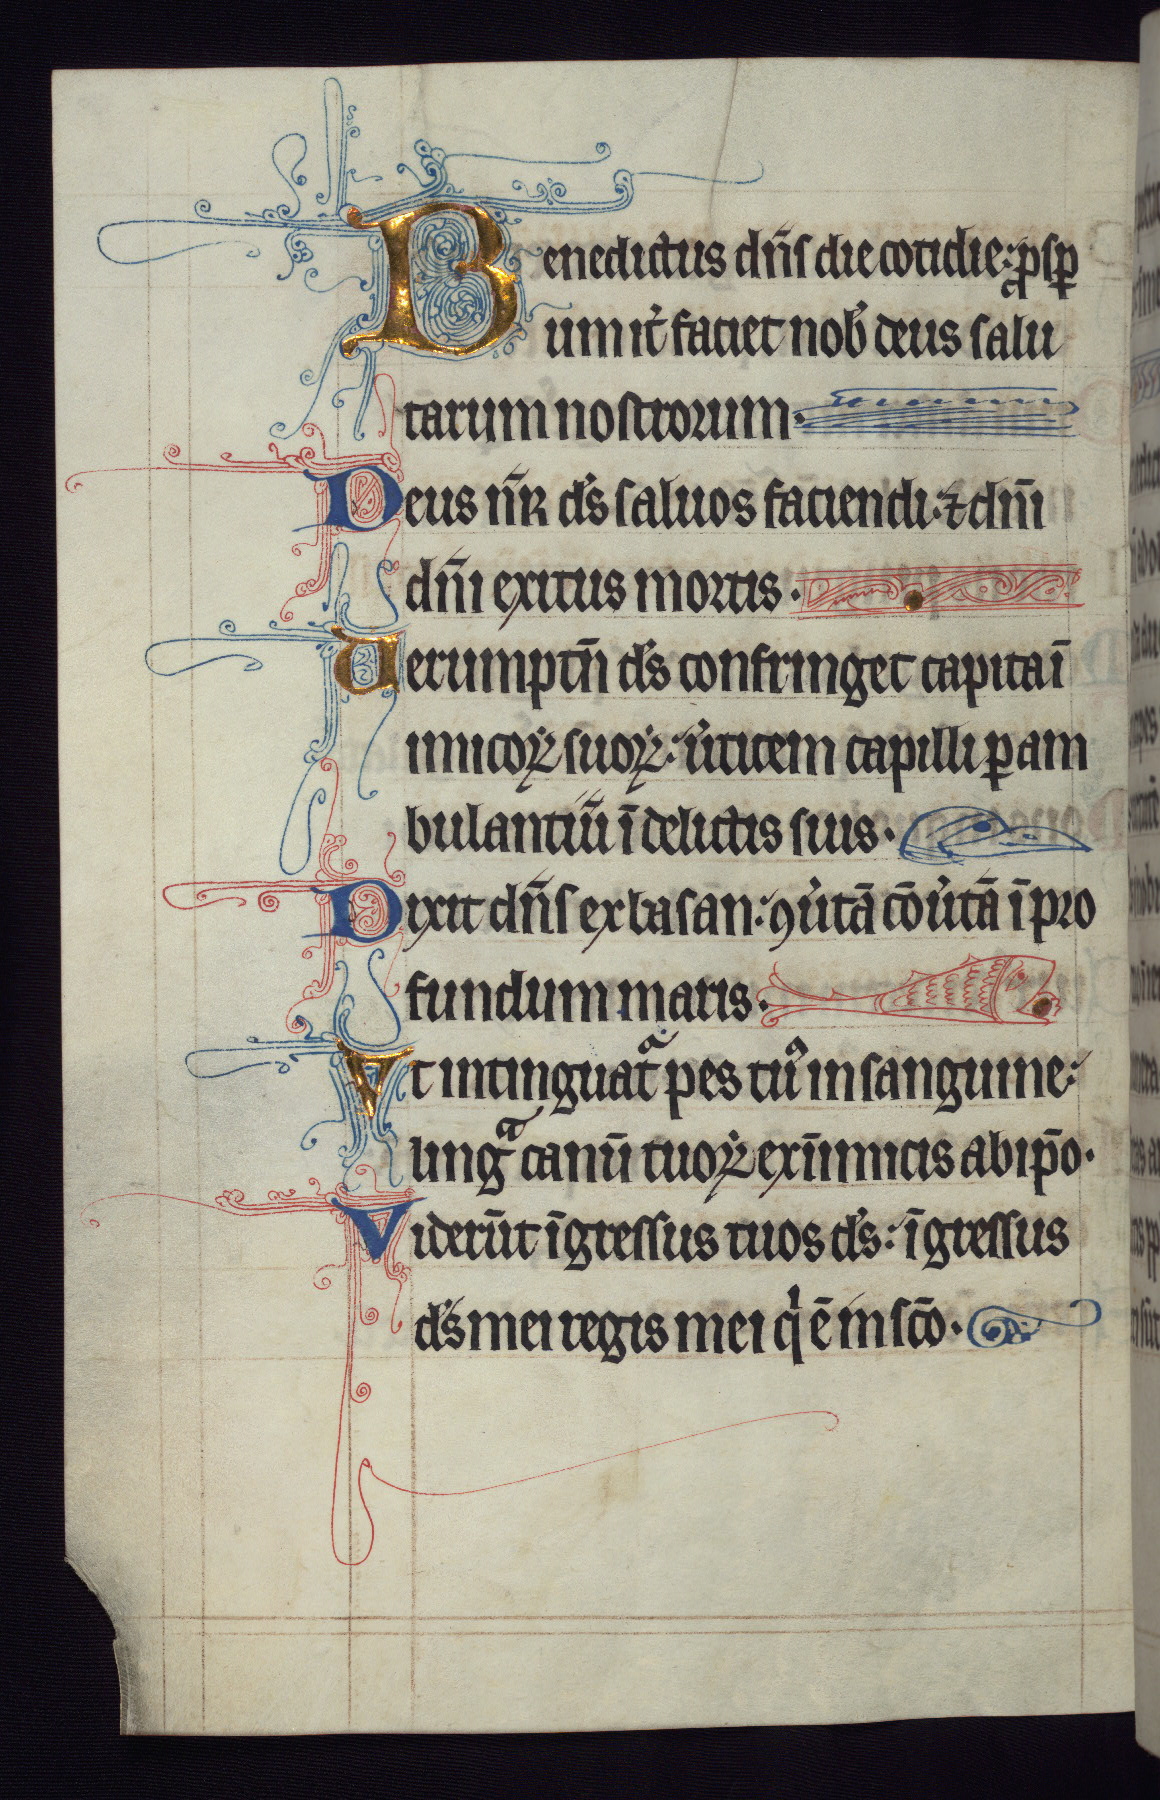 Benedictus dn̄s die cotidie: ꝓsꝑ
um it᷑ faciet nob̾ deus salu
tarum nostrorum.
Deus nr̄ ds̄ saluos faciendi: ⁊ dn̄i
dn̄i exitus mortis.
Uerumptn̄ ds̄ confringet capita ī
imicoꝝ suoꝝ: u̾ticem capilli ꝑam
bulantiū ī delictis suis.
Dixit dn̄s ex basan: ꝯu̾tā cōu̾tā ī pro
fundum maris.
Vt intinguatᷓ pes tuᷤ in sanguine:
lingᷓ canū tuoꝝ ex īimicis ab ip̄o.
Viderūt īgressus tuos ds̄: īgressus
ds̄ mei regis mei qͥ ē in sc̄o.